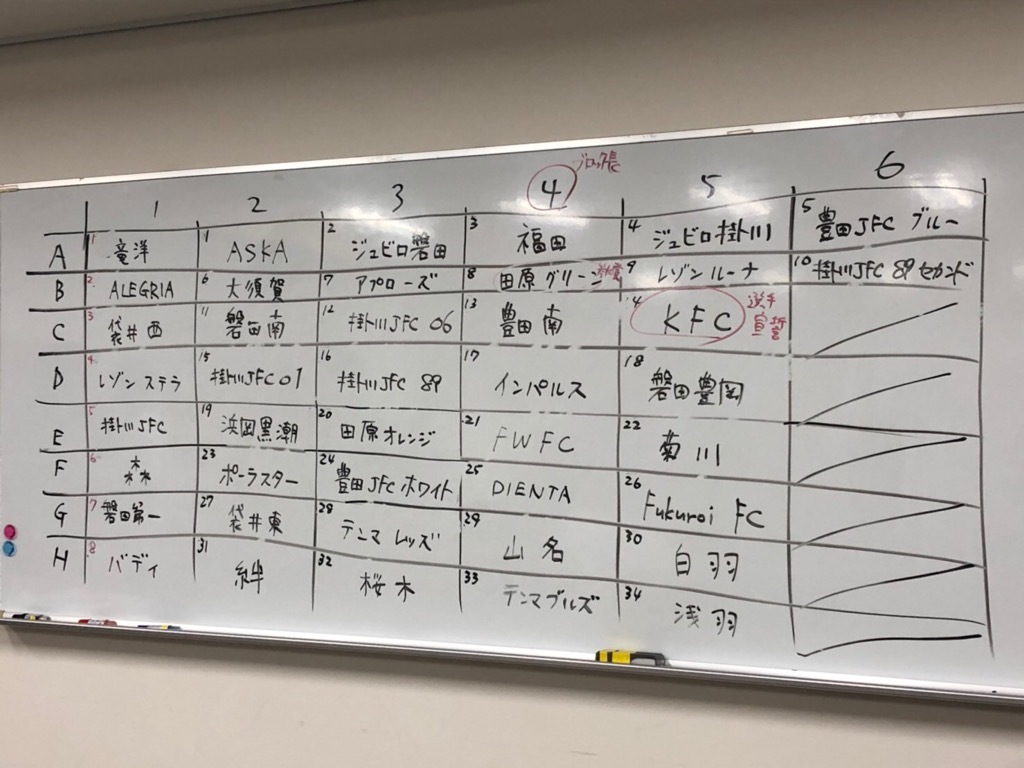 ブロック長
1 2 3 4 5 6
A 1 竜洋 1 ASKA 2 ジュビロ磐田 3 福田 4 ジュビロ掛川 5 豊田JFC ブルー
B 2 ALEGRIA 6 大須賀 7 アプローズ 8 田原グリーン 9 レゾンルーナ 10 掛川JFC 89 セカンド
C 3 袋井西 11 磐田南 12 掛川JFC 06 13 豊田南 14 KFC 選手宣誓
D 4 レゾン ステラ 15 掛川JFC 01 16 掛川JFC 89 17 インパルス 18 磐田豊岡
E 5 掛川JFC 19 浜岡黒潮 20 田原オレンジ 21 FWFC 22 菊川
F 6 森 23 ポーラスター 24 豊田JFCホワイト 25 DIENTA 26 Fukuroi FC
G 7 磐田第一 27 袋井東 28 テンマレッズ 29 山名 30 白羽
H 8 バディ 31 絆 32 桜木 33 テンマブルズ 34 浅羽